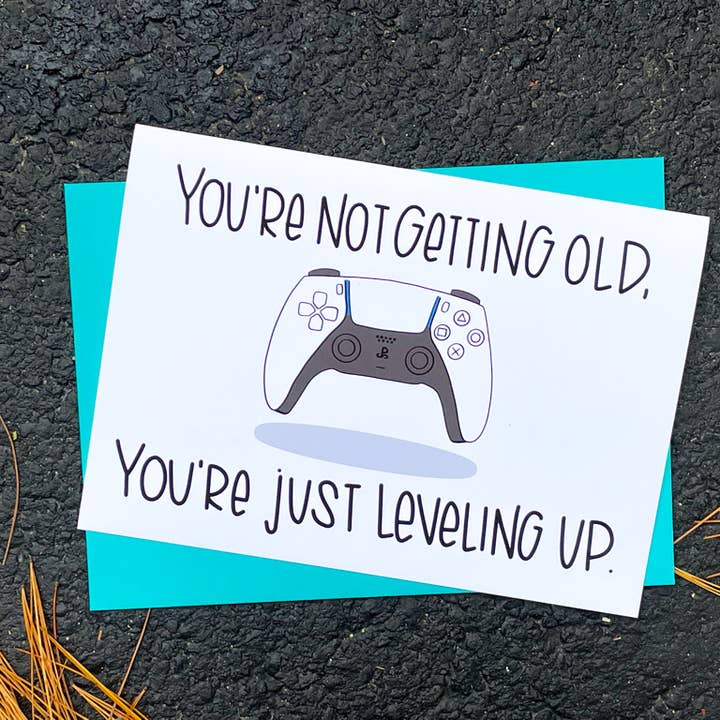 YOU'Re NOT GeTTING OLD,
YOU'Re jUST LeVeLING UP.